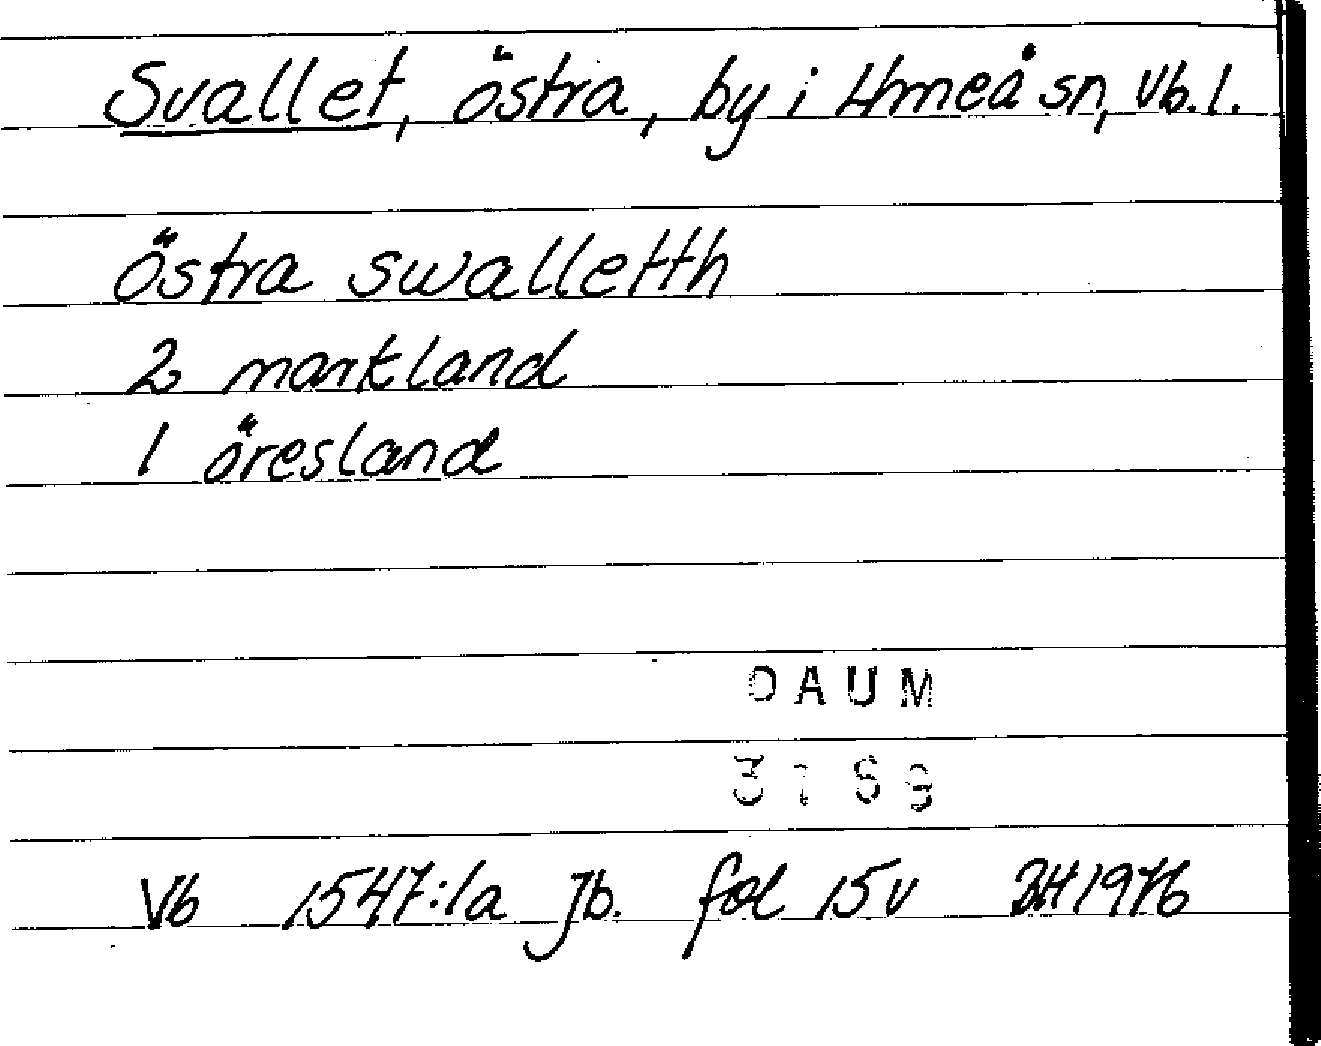 Svallet, östra, by i Umeå sn, Vb. l.
östra swalletth
2 markland
1 öresland
DAUM
Vb 1547:1a Jb. fol 15v BH 1976